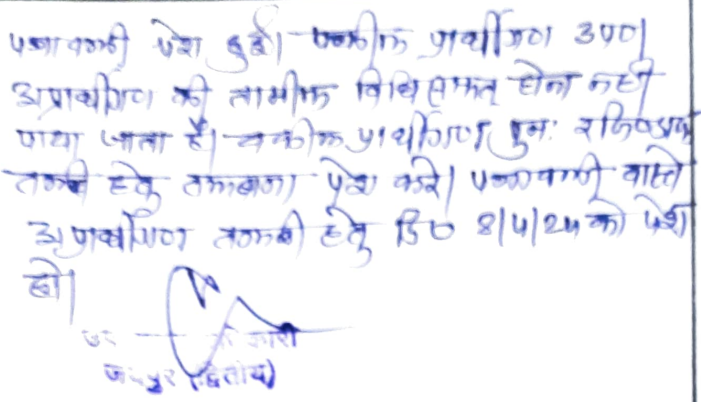 पत्रावली पेश हुई। वकील प्रार्थीगण उप०।
अप्रार्थीगण की तामील विधि सम्मत होना नहीं
पाया जाता है। वकील प्रार्थीगण पुनः रजिस्टर्ड
तलबी हेतु तलबाना पेश करे। पत्रावली वास्ते
अप्रार्थीगण तलबी हेतु दि० 8/4/24 को पेश
हो।
जयपुर (द्वितीय)